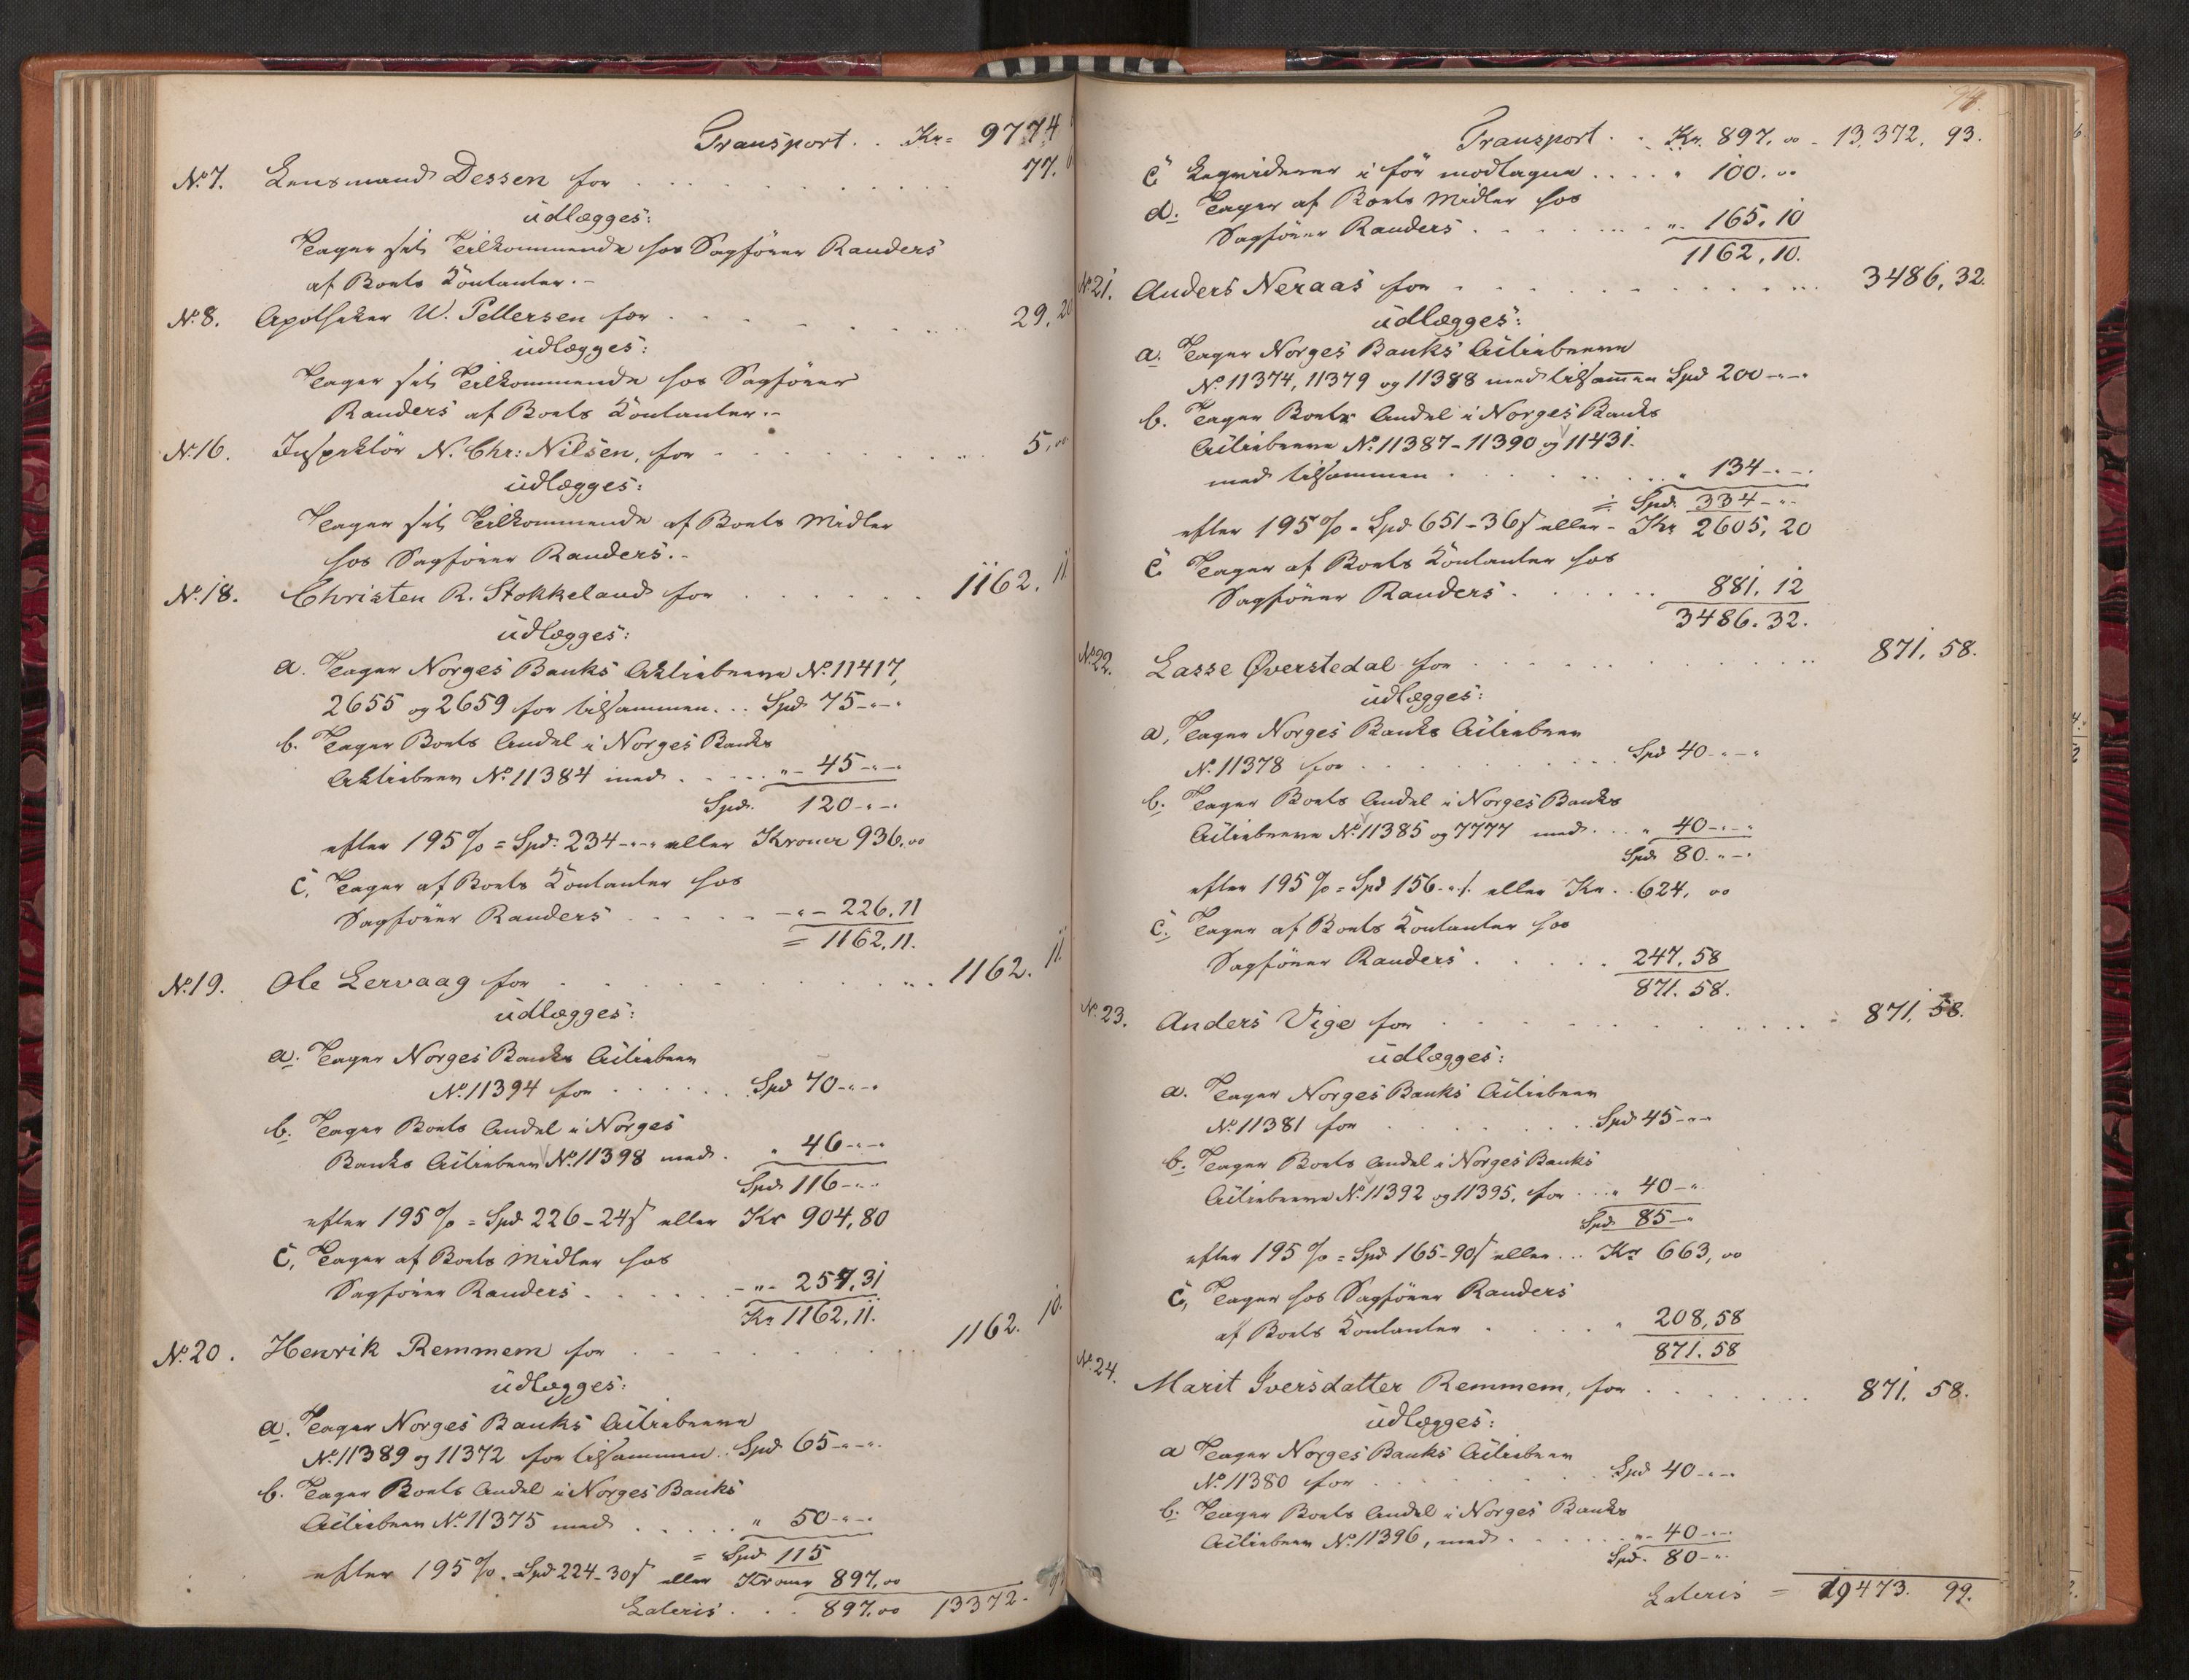 Transport . . Kr= 9774
No 7. Lensmand Dessen for . . . . 77.
udlægges:
Tager sit Tilkommende hos Sagfører Randers
af Boets Kontanter.-
No 8. Apotheker W. Pettersen for . . . . 29, 20
udlægges:
Tager sit Tilkommende hos Sagfører
Randers af Boets Kontanter.-
No 16. Inspektör N. Chr: Nilsen, for . . . . 5,00
udlægges:
Tager sit Tilkommende af Boets Midler
hos Sagfører Randers.-
No 18. Christen R. Stokkeland for . . . . 1162. 11.
udlægges:
a. Tager Norges Banks Aktiebreve No 11417,
2655 og 2659 for tilsammen. . . Spd 75-"-"
b. Tager Boets Andel i Norges Banks
Aktiebrev No 11384 med . . . . "- 45-"-"
Spd. 120-"-"
efter 195 % = Spd: 234-"-" eller Kroner 936,00
c, Tager af Boets Kontanter hos
Sagfører Randers . . . . -"- 226.11
= 1162,11.
No 19. Ole Lervaag for . . . . 1162. 11.
udlægges:
a. Tager Norges Banks Actiebrev
No 11394 for . . . . Spd 70-"-"
b. Tager Boets Andel i Norges
Banks Actiebrev No 11398 med . " 46-"-"
Spd 116-"-"
efter 195 % = Spd 226-24 s eller Kr 904,80
c, Tager af Boets Midler hos
Sagfører Randers . . . . -"- 257,31
Kr 1162,11.
No 20. Henrik Remmem for . . . . 1162. 10.
udlægges:
a. Tager Norges Banks Actiebreve
No 11389 og 11372 for tilsammen . Spd 65-"-"
b. Tager Boets Andel i Norges Banks
Actiebrev No 11375 med . . . . " 50-"-"
= Spd 115
efter 195 %. = Spd 224-30 s eller Kroner 897,00
Lateris . . . 897,00 13372.
Transport . . Kr. 897,00 - 13,372, 93.
c. Liqviderer i för modtagne . . . . " 100.00
d. Tager af Boets Midler hos
Sagfører Randers . . . . " 165,10
1162,10.
No 21. Anders Neraas for . . . . 3486,32.
udlægges:
a. Tager Norges Banks Actiebreve
No 11374, 11379 og 11388 med tilsammen Spd 200-"-"
b. Tager Boets Andel i Norges Banks
Actiebreve No 11387-11390 og 11431.
med tilsammen . . . . " 134-"-"
= Spd. 334-"-"
efter 195 % = Spd 651-36 s eller - Kr 2605,20
c. Tager af Boets Kontanter hos
Sagfører Randers . . . . 881,12
3486.32.
No 22. Lasse Øverstedal for . . . . 871,58.
udlægges:
a, Tager Norges Banks Actiebrev
No 11378 for . . . . Spd 40-"-"
b. Tager Boets Andel i Norges Banks
Actiebreve No 11385 og 7777 med . . . " 40-"-"
Spd 80-"-"
efter 195 % = Spd 156-"- s eller Kr . . 624,00
c. Tager af Boets Kontanter hos
Sagfører Randers . . . . 247.58
871.58.
No 23. Anders Vige for . . . . 871,58.
udlægges:
a. Tager Norges Banks Actiebrev
No 11381 for . . . . Spd 45-"-"
b. Tager Boets Andel i Norges Banks
Actiebreve No 11392 og 11395, for . . . " 40-"
Spd 85-"
efter 195 % = Spd 165-90 s eller . . . Kr 663,00
c, Tager hos Sagfører Randers
af Boets Kontanter . . . . " 208,58
871.58
No 24. Marit Iversdatter Remmem, for . . . . 871,58.
udlægges:
a Tager Norges Banks Actiebrev
No 11380 for . . . . Spd 40-"-"
b. Tager Boets Andel i Norges Banks
Actiebrev No 11396, med . . . . "- 40-"-"
Spd. 80-"-"
Lateris = 19473. 99.